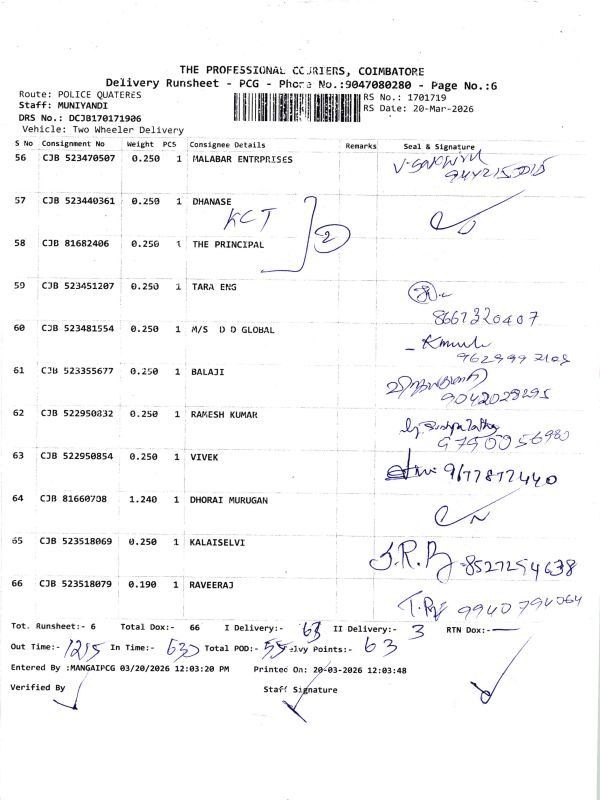 THE PROFESSIONAL COURIERS, COIMBATORE
Delivery Runsheet - PCG - Phone No.:9047080280 - Page No.:6
Route: POLICE QUATERES
RS No.: 1701719
Staff: MUNIYANDI
RS Date: 20-Mar-2026
DRS No.: DCJB170171906
Vehicle: Two Wheeler Delivery
S No Consignment No Weight PCS Consignee Details Remarks Seal & Signature
56 CJB 523470507 0.250 1 MALABAR ENTRPRISES
57 CJB 523440361 0.250 1 DHANASE
KCT 2
58 CJB 81682406 0.250 1 THE PRINCIPAL
59 CJB 523451207 0.250 1 TARA ENG
8667320407
60 CJB 523481554 0.250 1 M/S D D GLOBAL
61 CJB 523355677 0.250 1 BALAJI
9042029295
62 CJB 522950832 0.250 1 RAMESH KUMAR
63 CJB 522950854 0.250 1 VIVEK 9677872440
64 CJB 81660708 1.240 1 DHORAI MURUGAN
65 CJB 523518069 0.250 1 KALAISELVI J.R.P 8527254638
66 CJB 523518079 0.190 1 RAVEERAJ
9940794064
Tot. Runsheet:- 6 Total Dox:- 66 I Delivery:- 63 II Delivery:- 3 RTN Dox:-
Out Time:- 1215 In Time:- 630 Total POD:- 55 elvy Points:- 63
Entered By :MANGAIPCG 03/20/2026 12:03:20 PM Printed On: 20-03-2026 12:03:48
Verified By Staff Signature